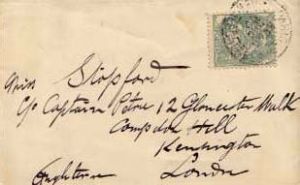 Miss Stopford
c/o Captain Petrie 12 Gloucester Walk
Campden Hill
Kensington
London